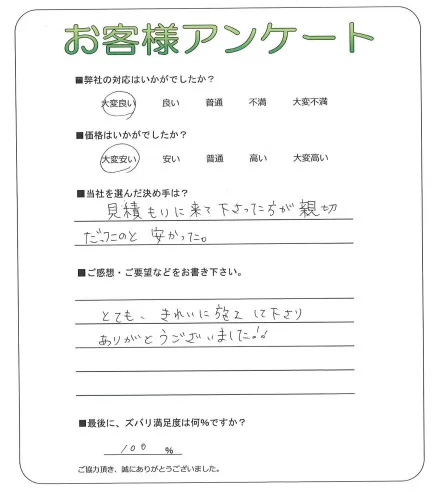 お客様アンケート
■弊社の対応はいかがでしたか？
大変良い 良い 普通 不満 大変不満
■価格はいかがでしたか？
大変安い 安い 普通 高い 大変高い
■当社を選んだ決め手は？
見積もりに来て下さった方が親切
だったのと安かった。
■ご感想・ご要望などをお書き下さい。
とても、きれいに施工して下さり
ありがとうございました!!
■最後に、ズバリ満足度は何％ですか？
100 ％
ご協力頂き、誠にありがとうございました。